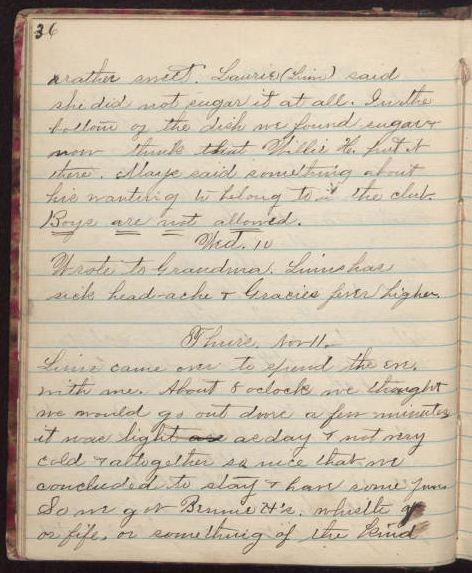 36
rather sweet. Laurie (Linn) said
she did not sugar it at all. In the
bottom of the dish we found sugar &
now think that Willie H. put it
there. Marye said something about
his wanting to belong to the club.
Boys are not allowed.
Wed. 10
Wrote to Grandma. Linn has
sick head-ache & Gracies fever higher.
Thurs. Nov 11.
Linn came over to spend the eve.
with me. About 8 oclock we thought
we would go out doors a few minutes
it was light as day & not very
cold & altogether so nice that we
concluded to stay & have some fun
So we got Bennie H's. whistle
or fife, or something of the kind